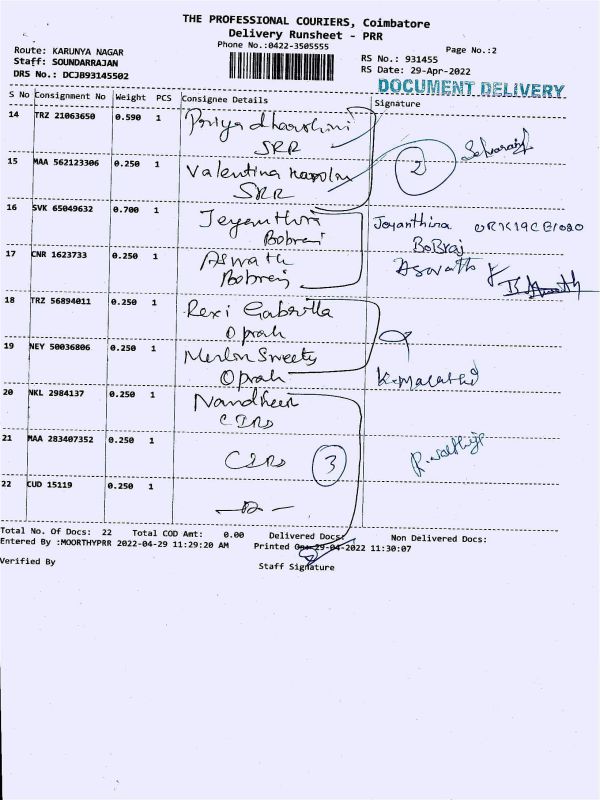 THE PROFESSIONAL COURIERS, Coimbatore
Delivery Runsheet - PRR
Phone No.:0422-3505555
Page No.:2
Route: KARUNYA NAGAR
Staff: SOUNDARRAJAN
DRS No.: DCJB93145502
RS No.: 931455
RS Date: 29-Apr-2022
DOCUMENT DELIVERY
S No Consignment No Weight PCS Consignee Details Signature
14 TRZ 21063650 0.590 1 Priya dharshini
SRR
15 MAA 562123306 0.250 1 Valentina
SRR
2
16 SVK 65049632 0.700 1 Jeyanthiri
Bobraj
Jeyanthina URK19CE1020
BoBraj
17 CNR 1623733 0.250 1 Aswath
Bobraj
Aswath
18 TRZ 56894011 0.250 1 Rexi Gabrilla
Oprah
19 NEY 50036806 0.250 1 Merlin Sweety
Oprah
K. Malathi
20 NKL 2984137 0.250 1 Nandheen
21 MAA 283407352 0.250 1
3
22 CUD 15119 0.250 1
Total No. Of Docs: 22 Total COD Amt: 0.00 Delivered Docs: Non Delivered Docs:
Entered By :MOORTHYPRR 2022-04-29 11:29:20 AM Printed On: 29-04-2022 11:30:07
Verified By
Staff Signature